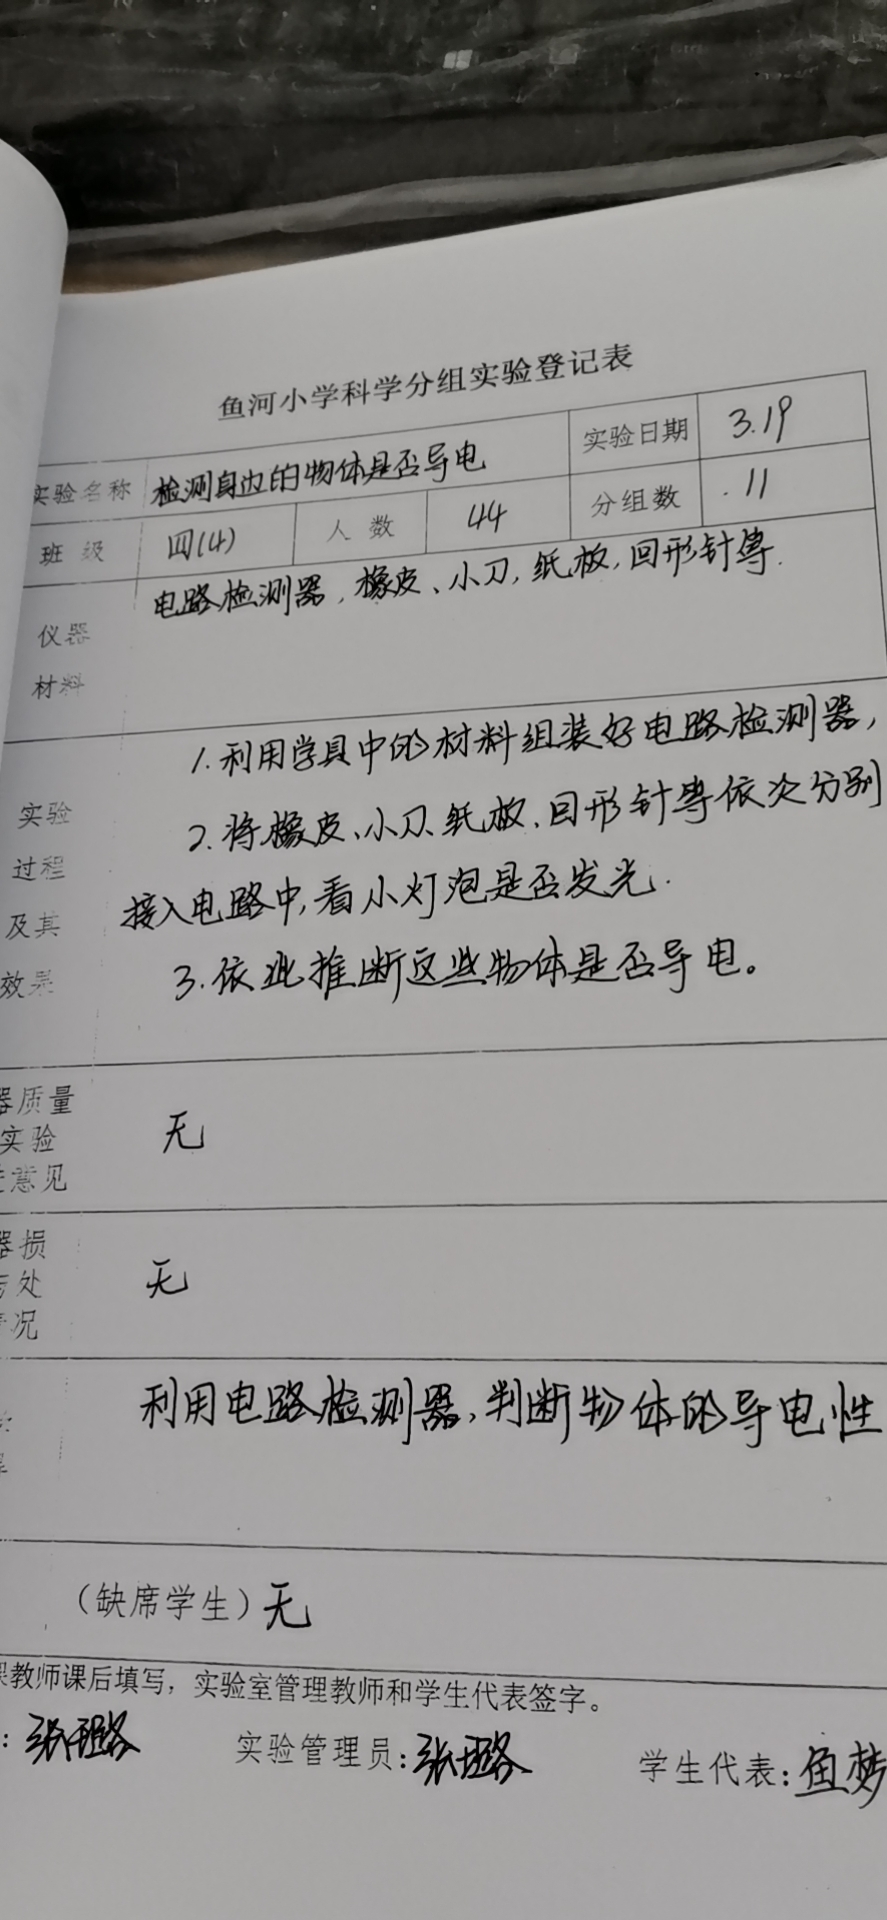 鱼河小学科学分组实验登记表
实验名称 检测身边的物体是否导电 实验日期 3.19
班级 四(4) 人数 44 分组数 11
仪器材料 电路检测器,橡皮、小刀,纸板,回形针等.
实验过程及其效果
1.利用学具中的材料组装好电路检测器,
2.将橡皮、小刀、纸板、回形针等依次分别
接入电路中,看小灯泡是否发光.
3.依此推断这些物体是否导电。
器质量
实验
意见
无
器损
处
况
无
利用电路检测器,判断物体的导电性
(缺席学生)无
教师课后填写,实验室管理教师和学生代表签字。
: 张璐 实验管理员:张璐 学生代表:鱼梦